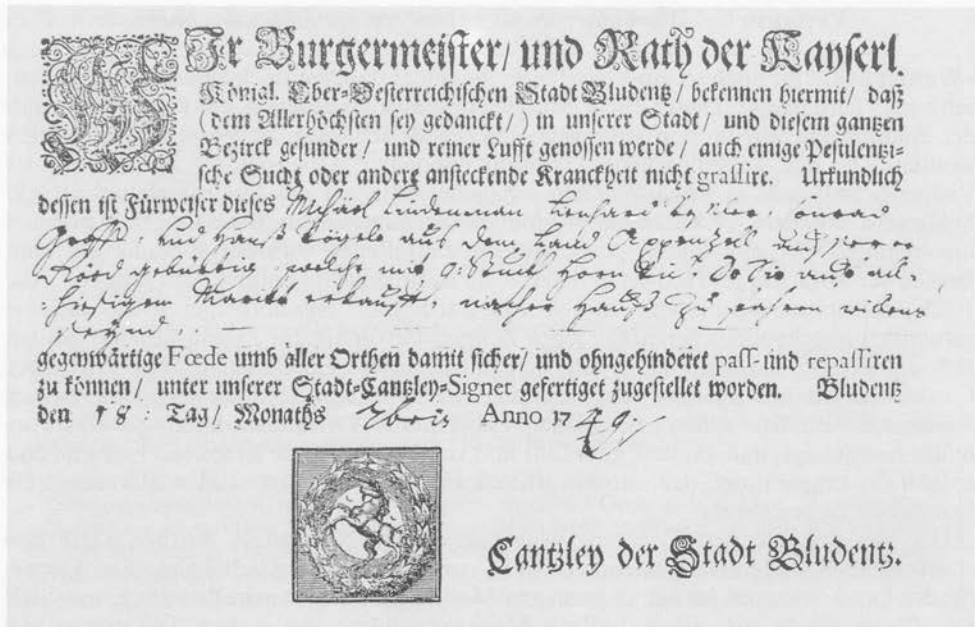 WIr Burgermeister/ und Rath der Kayserl.
Königl. Ober-Oesterreichischen Stadt Bludentz/ bekennen hiermit/ daß
(dem Allerhöchsten sey gedanckt/) in unserer Stadt/ und diesem gantzen
Bezirck gesunder/ und reiner Lufft genossen werde/ auch einige Pestilentzi-
sche Sucht oder andere ansteckende Kranckheit nicht grassire. Urkundlich
dessen ist Fürweiser dieses Michael Lindenman Lenhard Conrad
und Hanß Vögele aus dem Land Appenzell
gebürtig welche mit 9: Stuckh Horn So Sie auf al-
hiesigem Marckt erkaufft, nacher Hauß Zu willens
seynd
gegenwärtige Fœde umb aller Orthen damit sicher/ und ohngehinderet pass- und repassiren
zu können/ unter unserer Stadt-Cantzley-Signet gefertiget zugestellet worden. Bludentz
den 18: Tag/ Monaths 7bris Anno 1749
Cantzley der Stadt Bludentz.